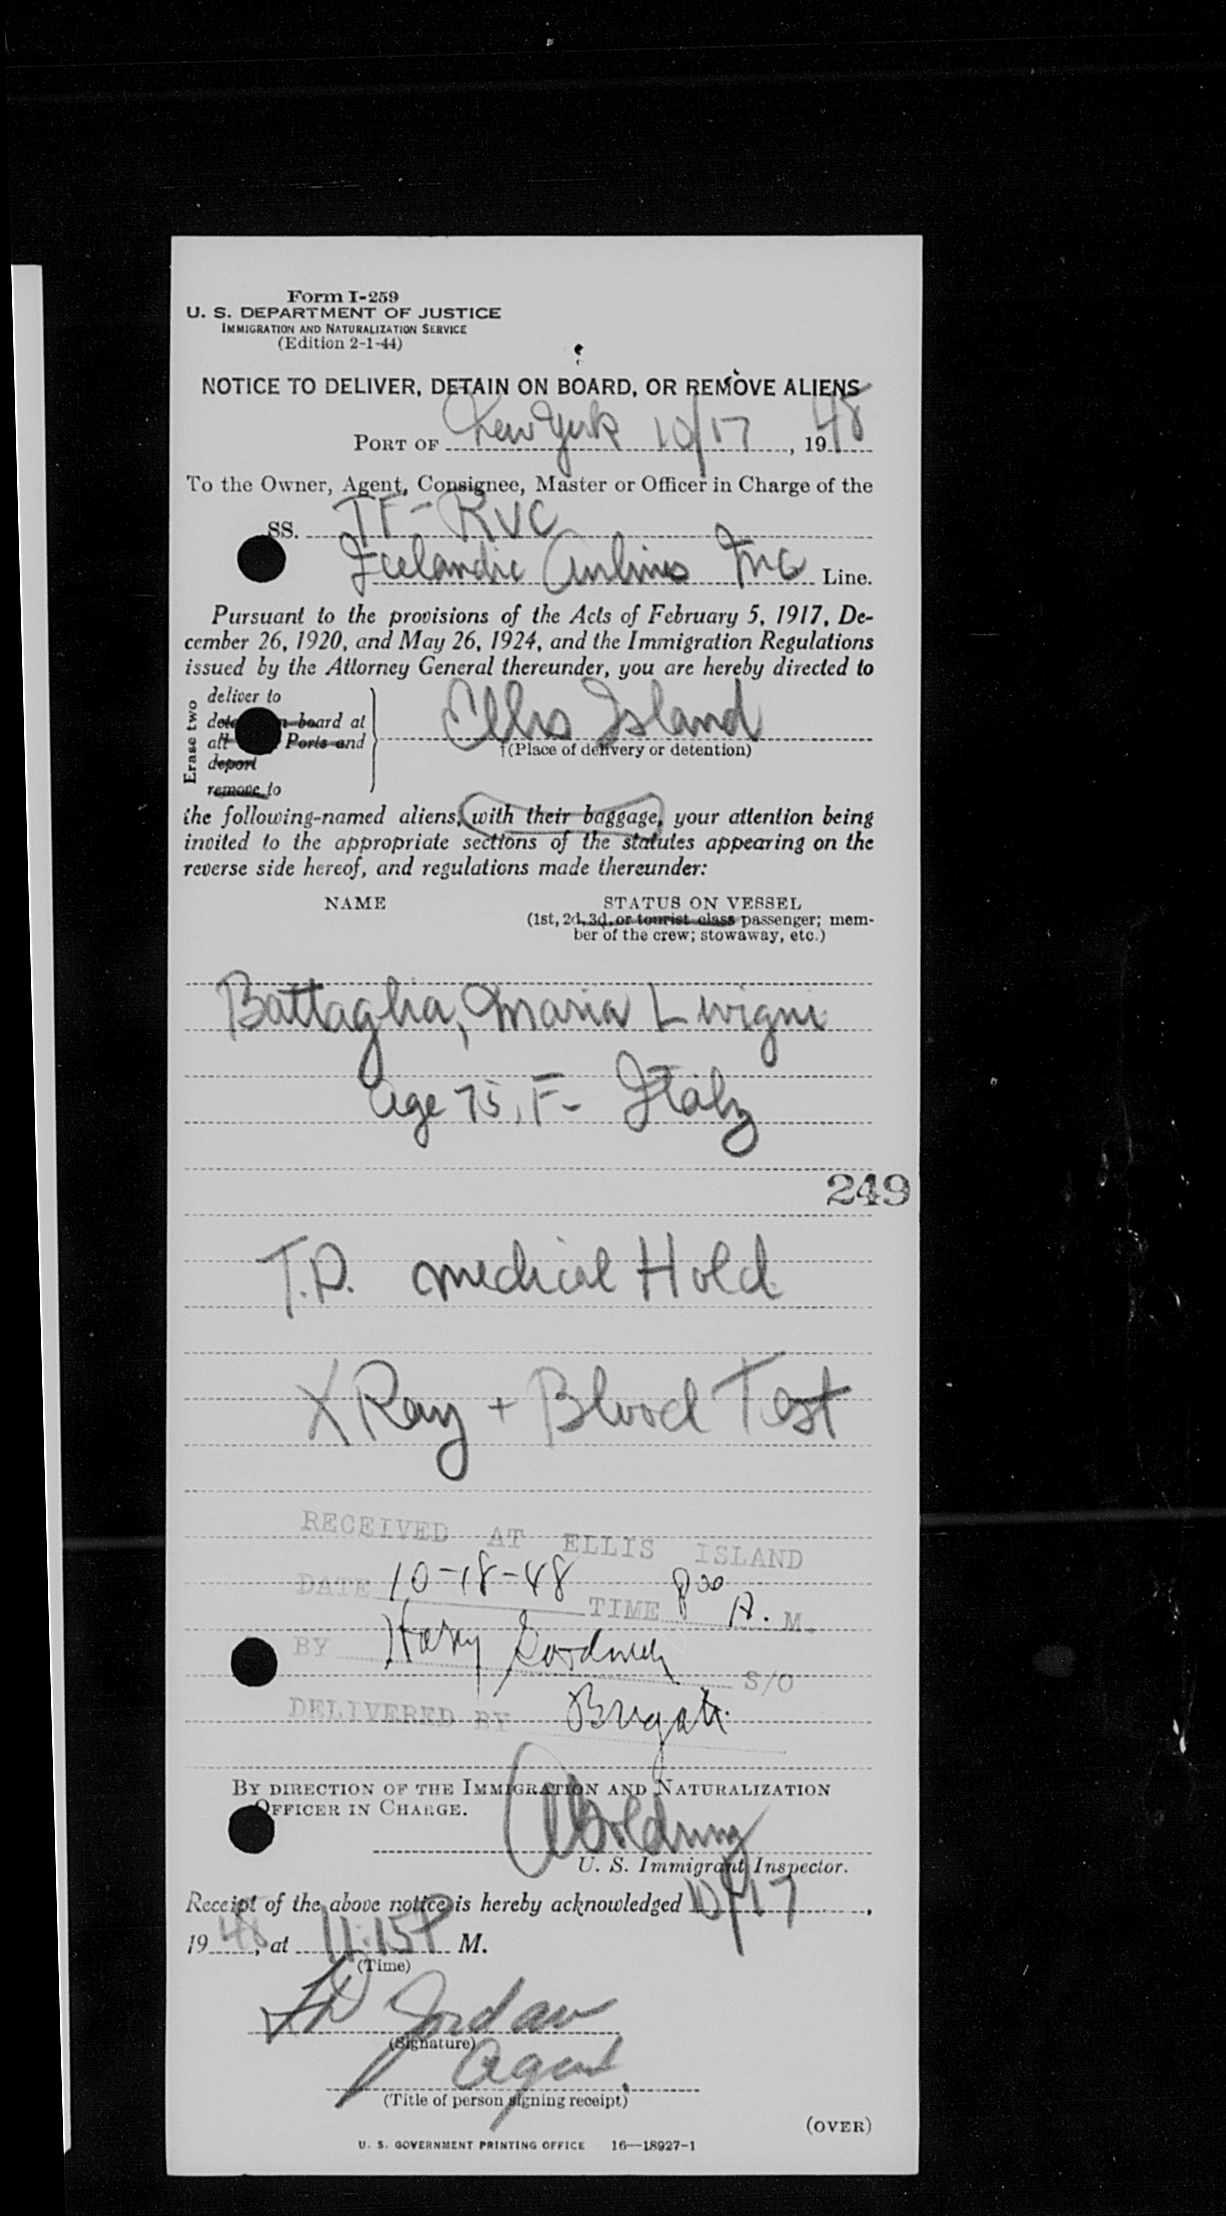 Form I-259
U. S. DEPARTMENT OF JUSTICE
IMMIGRATION AND NATURALIZATION SERVICE
(Edition 2-1-44)
NOTICE TO DELIVER, DETAIN ON BOARD, OR REMOVE ALIENS
PORT OF New York 10/17, 1948
To the Owner, Agent, Consignee, Master or Officer in Charge of the
SS. TF-RVC
Icelandic Airlines Inc Line.
Pursuant to the provisions of the Acts of February 5, 1917, De-
cember 26, 1920, and May 26, 1924, and the Immigration Regulations
issued by the Attorney General thereunder, you are hereby directed to
Erase two
deliver to
board at
all Ports and
deport
remove to
Ellis Island
(Place of delivery or detention)
the following-named aliens, with their baggage, your attention being
invited to the appropriate sections of the statutes appearing on the
reverse side hereof, and regulations made thereunder:
NAME STATUS ON VESSEL
(1st, 2d, 3d, or tourist class passenger; mem-
ber of the crew; stowaway, etc.)
Battaglia, Maria
Age 75, F- Italy
249
T.D. medical Hold
X Ray + Blood Test
RECEIVED AT ELLIS ISLAND
DATE 10-18-48 TIME 8 00 A. M.
BY Harry S/O
DELIVERED BY
BY DIRECTION OF THE IMMIGRATION AND NATURALIZATION
OFFICER IN CHARGE.
U. S. Immigrant Inspector.
Receipt of the above notice is hereby acknowledged 10/17,
1948, at 11:15P M.
(Time)
Jordan
(Signature)
Agent.
(Title of person signing receipt)
(OVER)
U. S. GOVERNMENT PRINTING OFFICE 16—18927-1